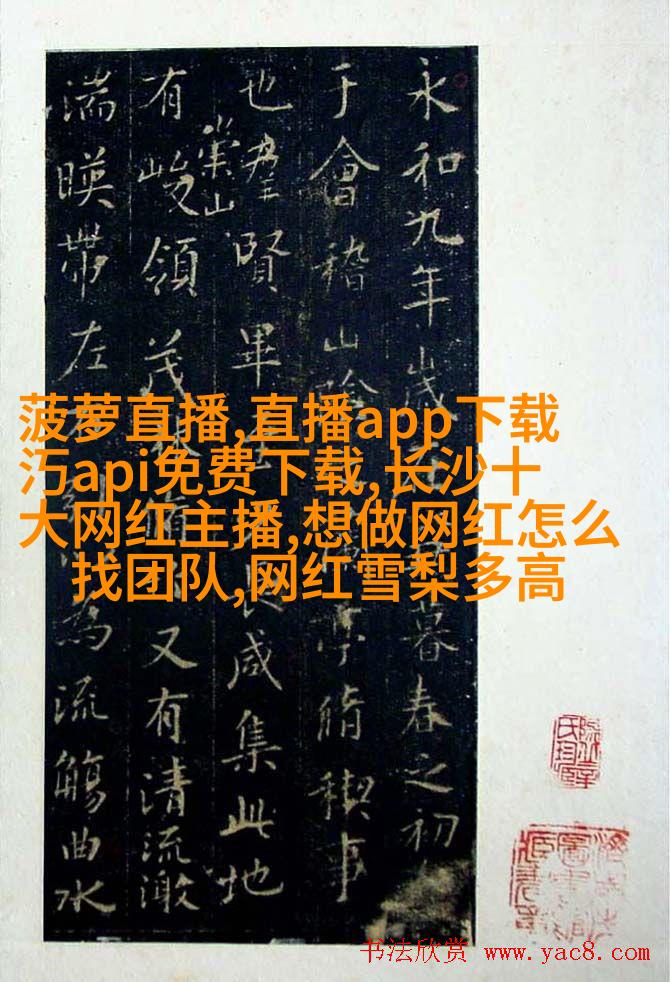 永和九年歲暮春之初
于會稽山陰亭脩稧事
也羣賢畢咸集此地
有崇山峻領茂林脩又有清流激
湍暎帶左為流觴曲水
菠萝直播,直播app下载
汅api免费下载,长沙十
大网红主播,想做网红怎么
找团队,网红雪梨多高
书法欣赏 www.yac8.com